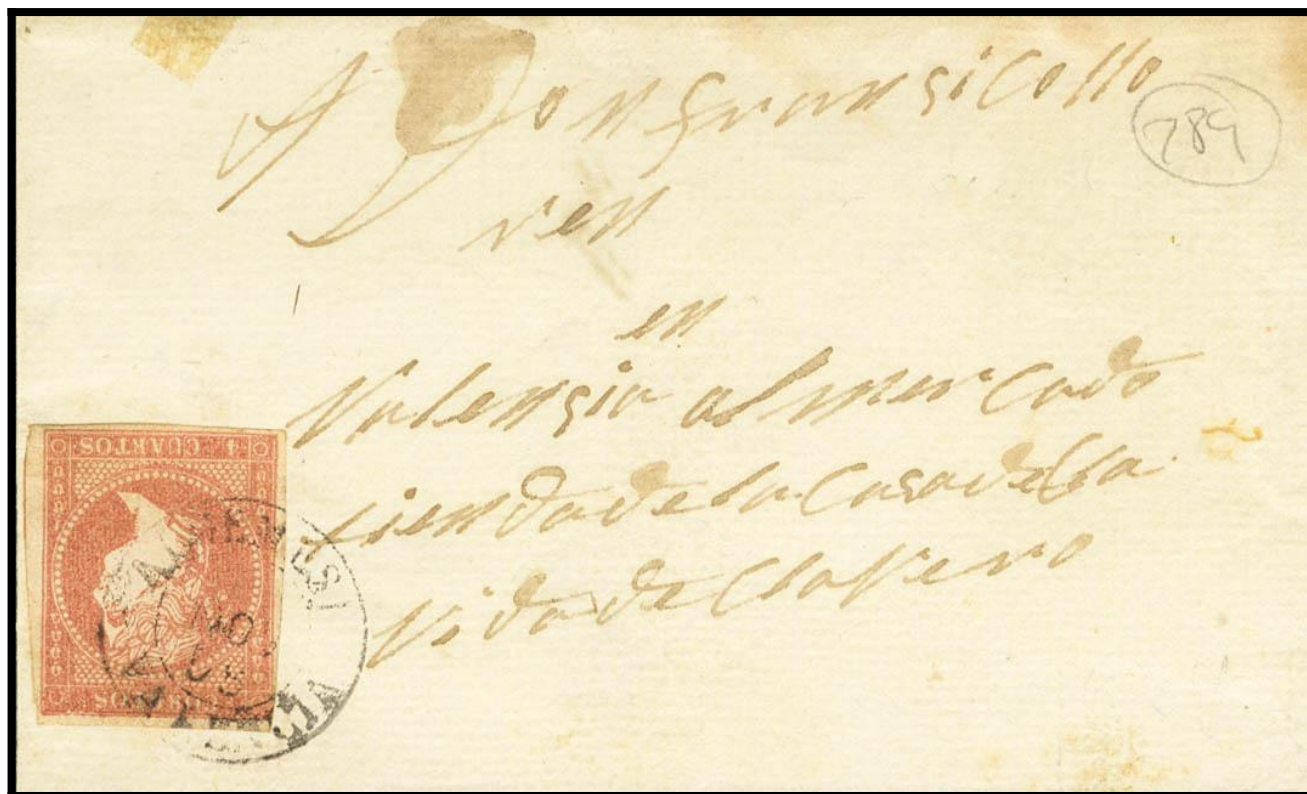 A Don fransicollo
789
ren
en
Valensia al mercado
tienda de la Casa de la
Vida de Clavero
4 CUARTOS